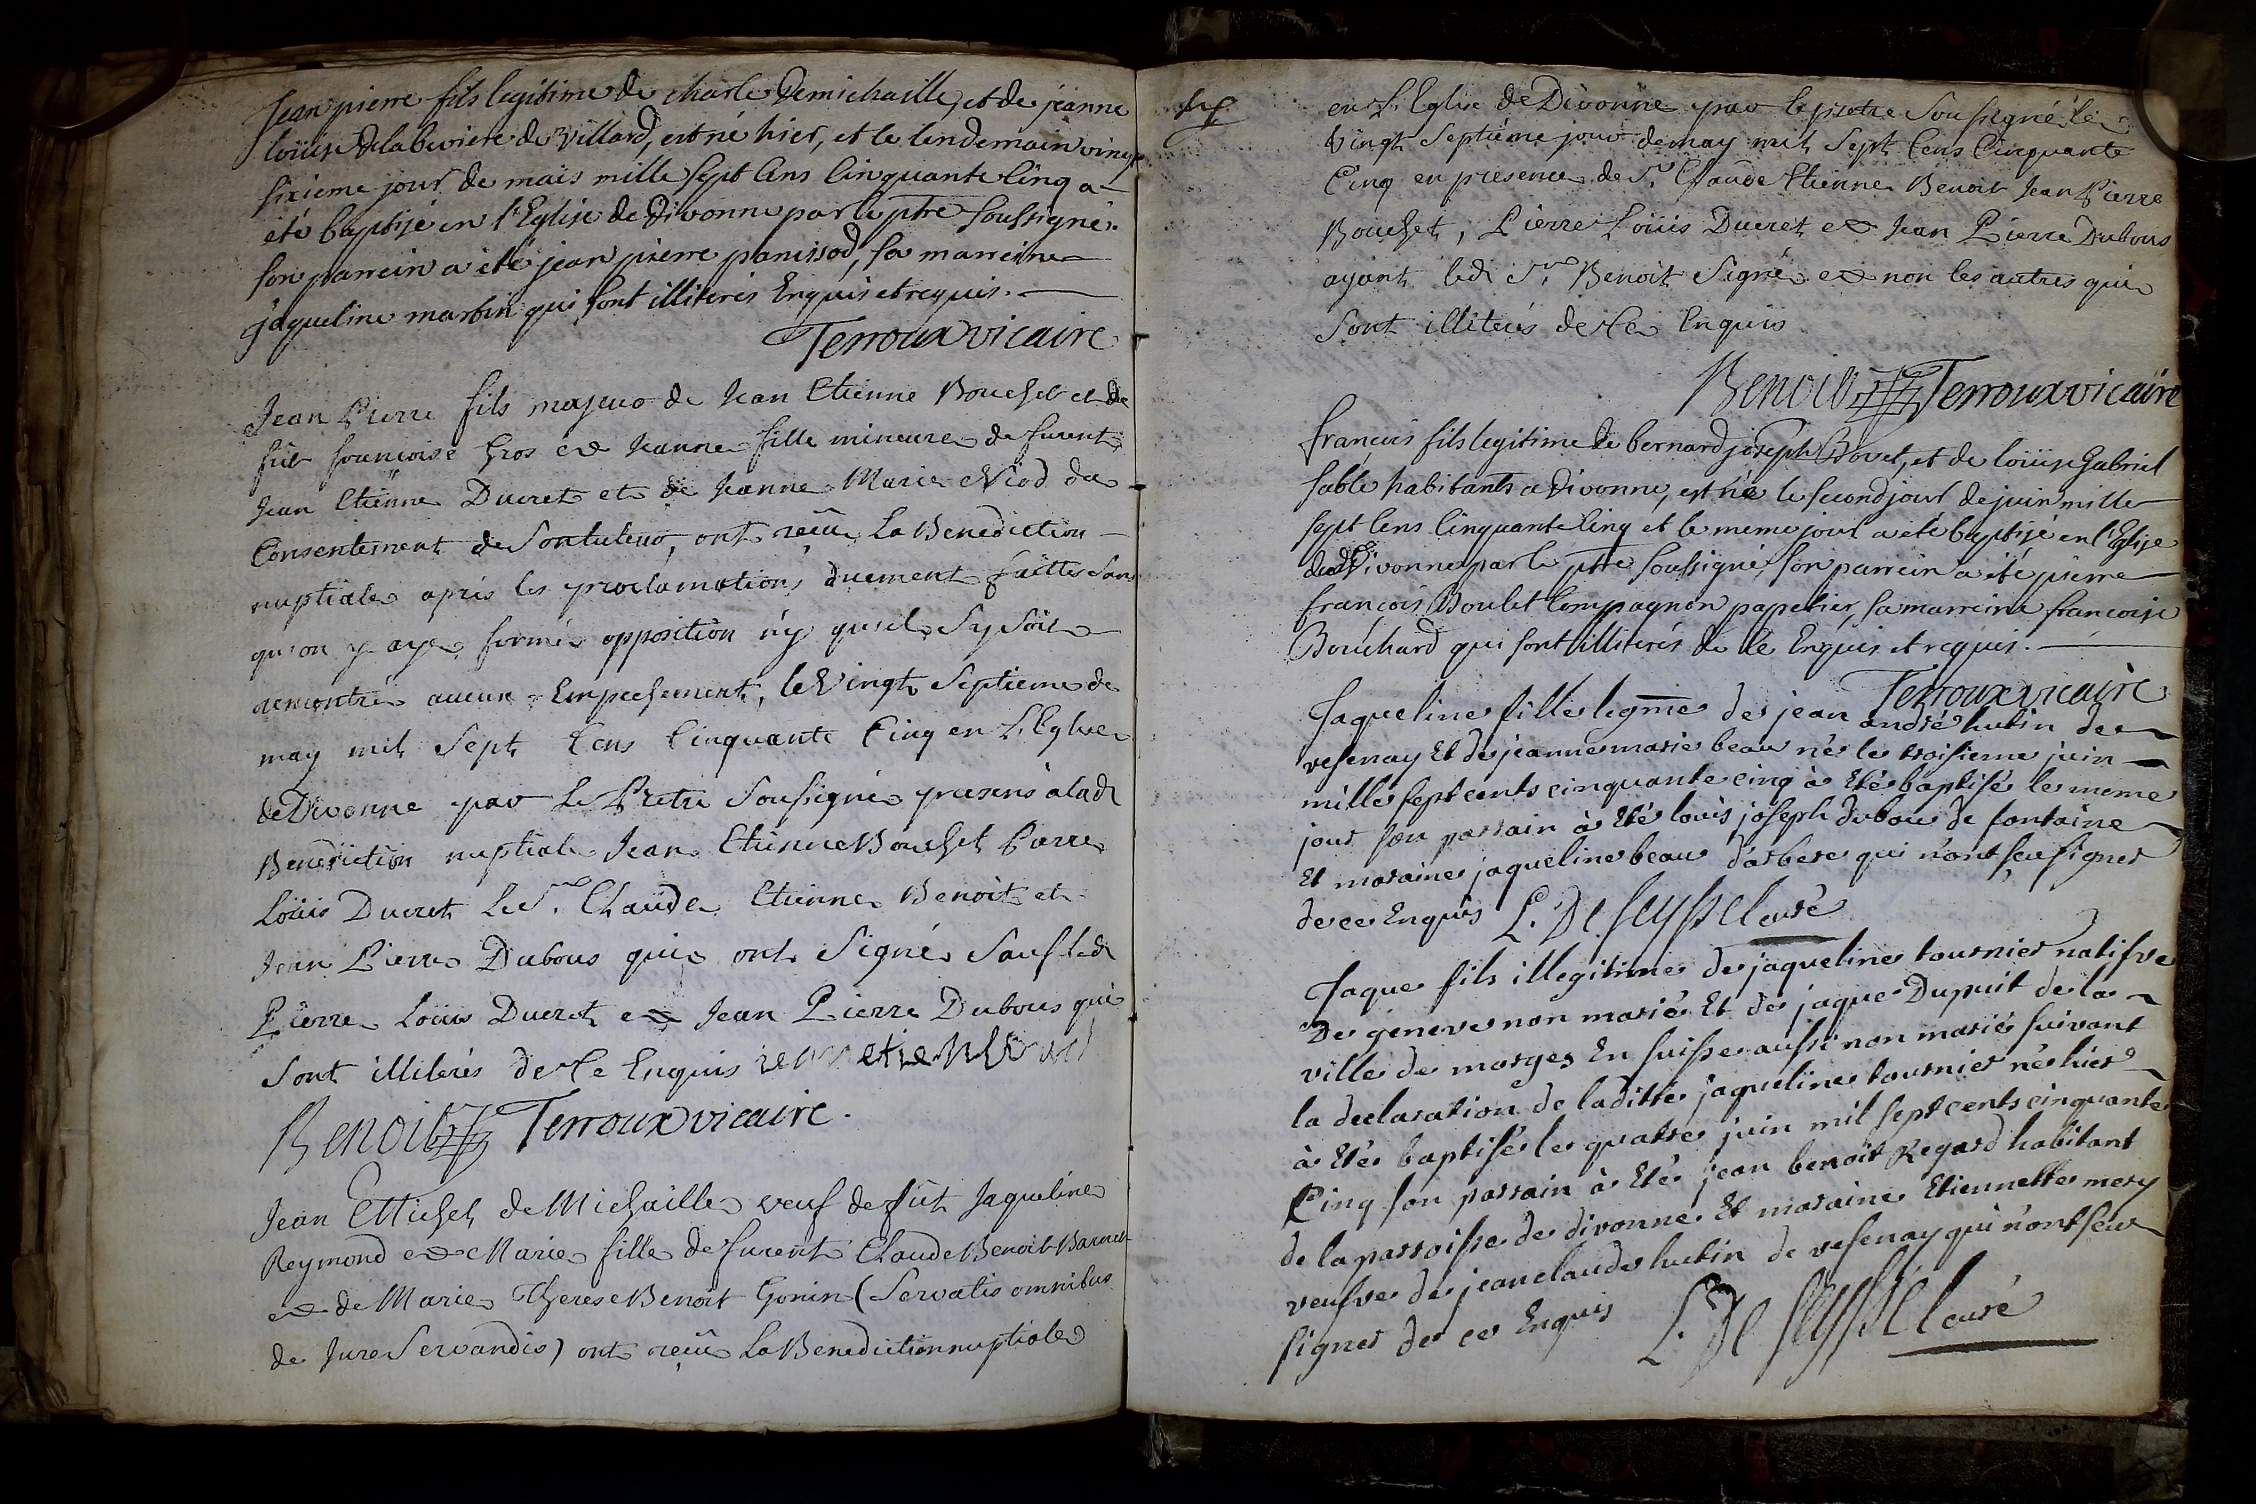 Jean pierre fils legitime de charle Demichaille, et de jeanne
loüise Delabeviere de Villard, est né hier, et le lendemain vingt
sixieme jour de mais mille sept Cens Cinquante Cinq a
été baptisé en l'Eglise de Divonne par le ptre soussigné.
son parrein a été jean pierre panissod, sa marreine
jaqueline martin qui sont illiterés Enquis et requis.
Terroux vicaire
Jean Pierre fils majeur de Jean Etienne Bouchet et de
fût francoise Gros et Jeanne fille mineure de furent
Jean Etienne Ducret et de Jeanne Marie Niod du
Consentement de Son tuteur, ont reçû La Benediction
nuptiale apris les proclamations duement faittes Sans
qu'on y aye formé opposition n'y qu'il Sy Soit
rencontré aucun Empechement, le Vingt Septieme de
may mil Sept Cens Cinquante Cinq en L'Eglise
de Divonne par Le Pretre Soussigné presens à lad
Benediction nuptiale Jean Etienne Bouchet Pierre
Loüis Ducret Le Sr. Claude Etienne Benoit et
Jean Pierre Dubous qui ont Signé Sauf led
Pierre Loüis Ducret et Jean Pierre Dubous qui
Sont illiterés de Ce Enquis
Benoit Terroux vicaire.
Jean Michel de Michaille veuf de fût Jaqueline
Reymond et Marie fille de furent Claude Benoit Barnet
et de Marie Therese Benoit Gonin (Servatis omnibus
de Jure Servandis) ont reçû La Benediction nuptiale
en L'Eglise de Divonne par le pretre Soussigné le
Vingt Septiéme jour de may mil Sept Cens Cinquante
Cinq en presence de Sr. Claude Etienne Benoit Jean Pierre
Bouchet, Pierre Loüis Ducret et Jean Pierre Dubous
ayant led Sr. Benoit Signé et non les autres qui
Sont illiterés de Ce Enquis
Benoit Terroux vicaire
francois fils legitime de bernard joseph Bovet, et de loüise Gabriel
sable habitants a Divonne, est né le second jour de juin mille
sept Cens Cinquante Cinq et le meme jour a été baptisé en l'Eglise
de Divonne par le ptre soussigné, son parrein a été pierre
francois Boulet Compagnon papetier, sa marreine francoise
Bouchard qui sont illiterés de Ce Enquis et requis.
Terroux vicaire
Jaqueline fille legme de jean andré hutin de
vesenay Et de jeanne marie beau née le troisieme juin
mille sept cents cinquante cinq à Etée baptisée le meme
jour son parrain à Eté louis joseph dubou de fontaine
Et maraine jaqueline beau d'arbere qui n'ont seu signer
de ce Enquis L. De seyssel curé
Jaque fils illegitime de jaqueline tournier natifve
De geneve non mariée Et de jaque Dupuit de la
ville de morges En suisse aussi non marié suivant
la declaration de laditte jaqueline tournier né hier
à Eté baptisé le quatre juin mil sept cents cinquante
Cinq son parrain à Eté jean benoit Regard habitant
de la parroisse de divonne Et maraine Etiennette mery
veufve de jean claude hutin de vesenay qui n'ont seu
signer de ce Enquis L. De seyssel curé